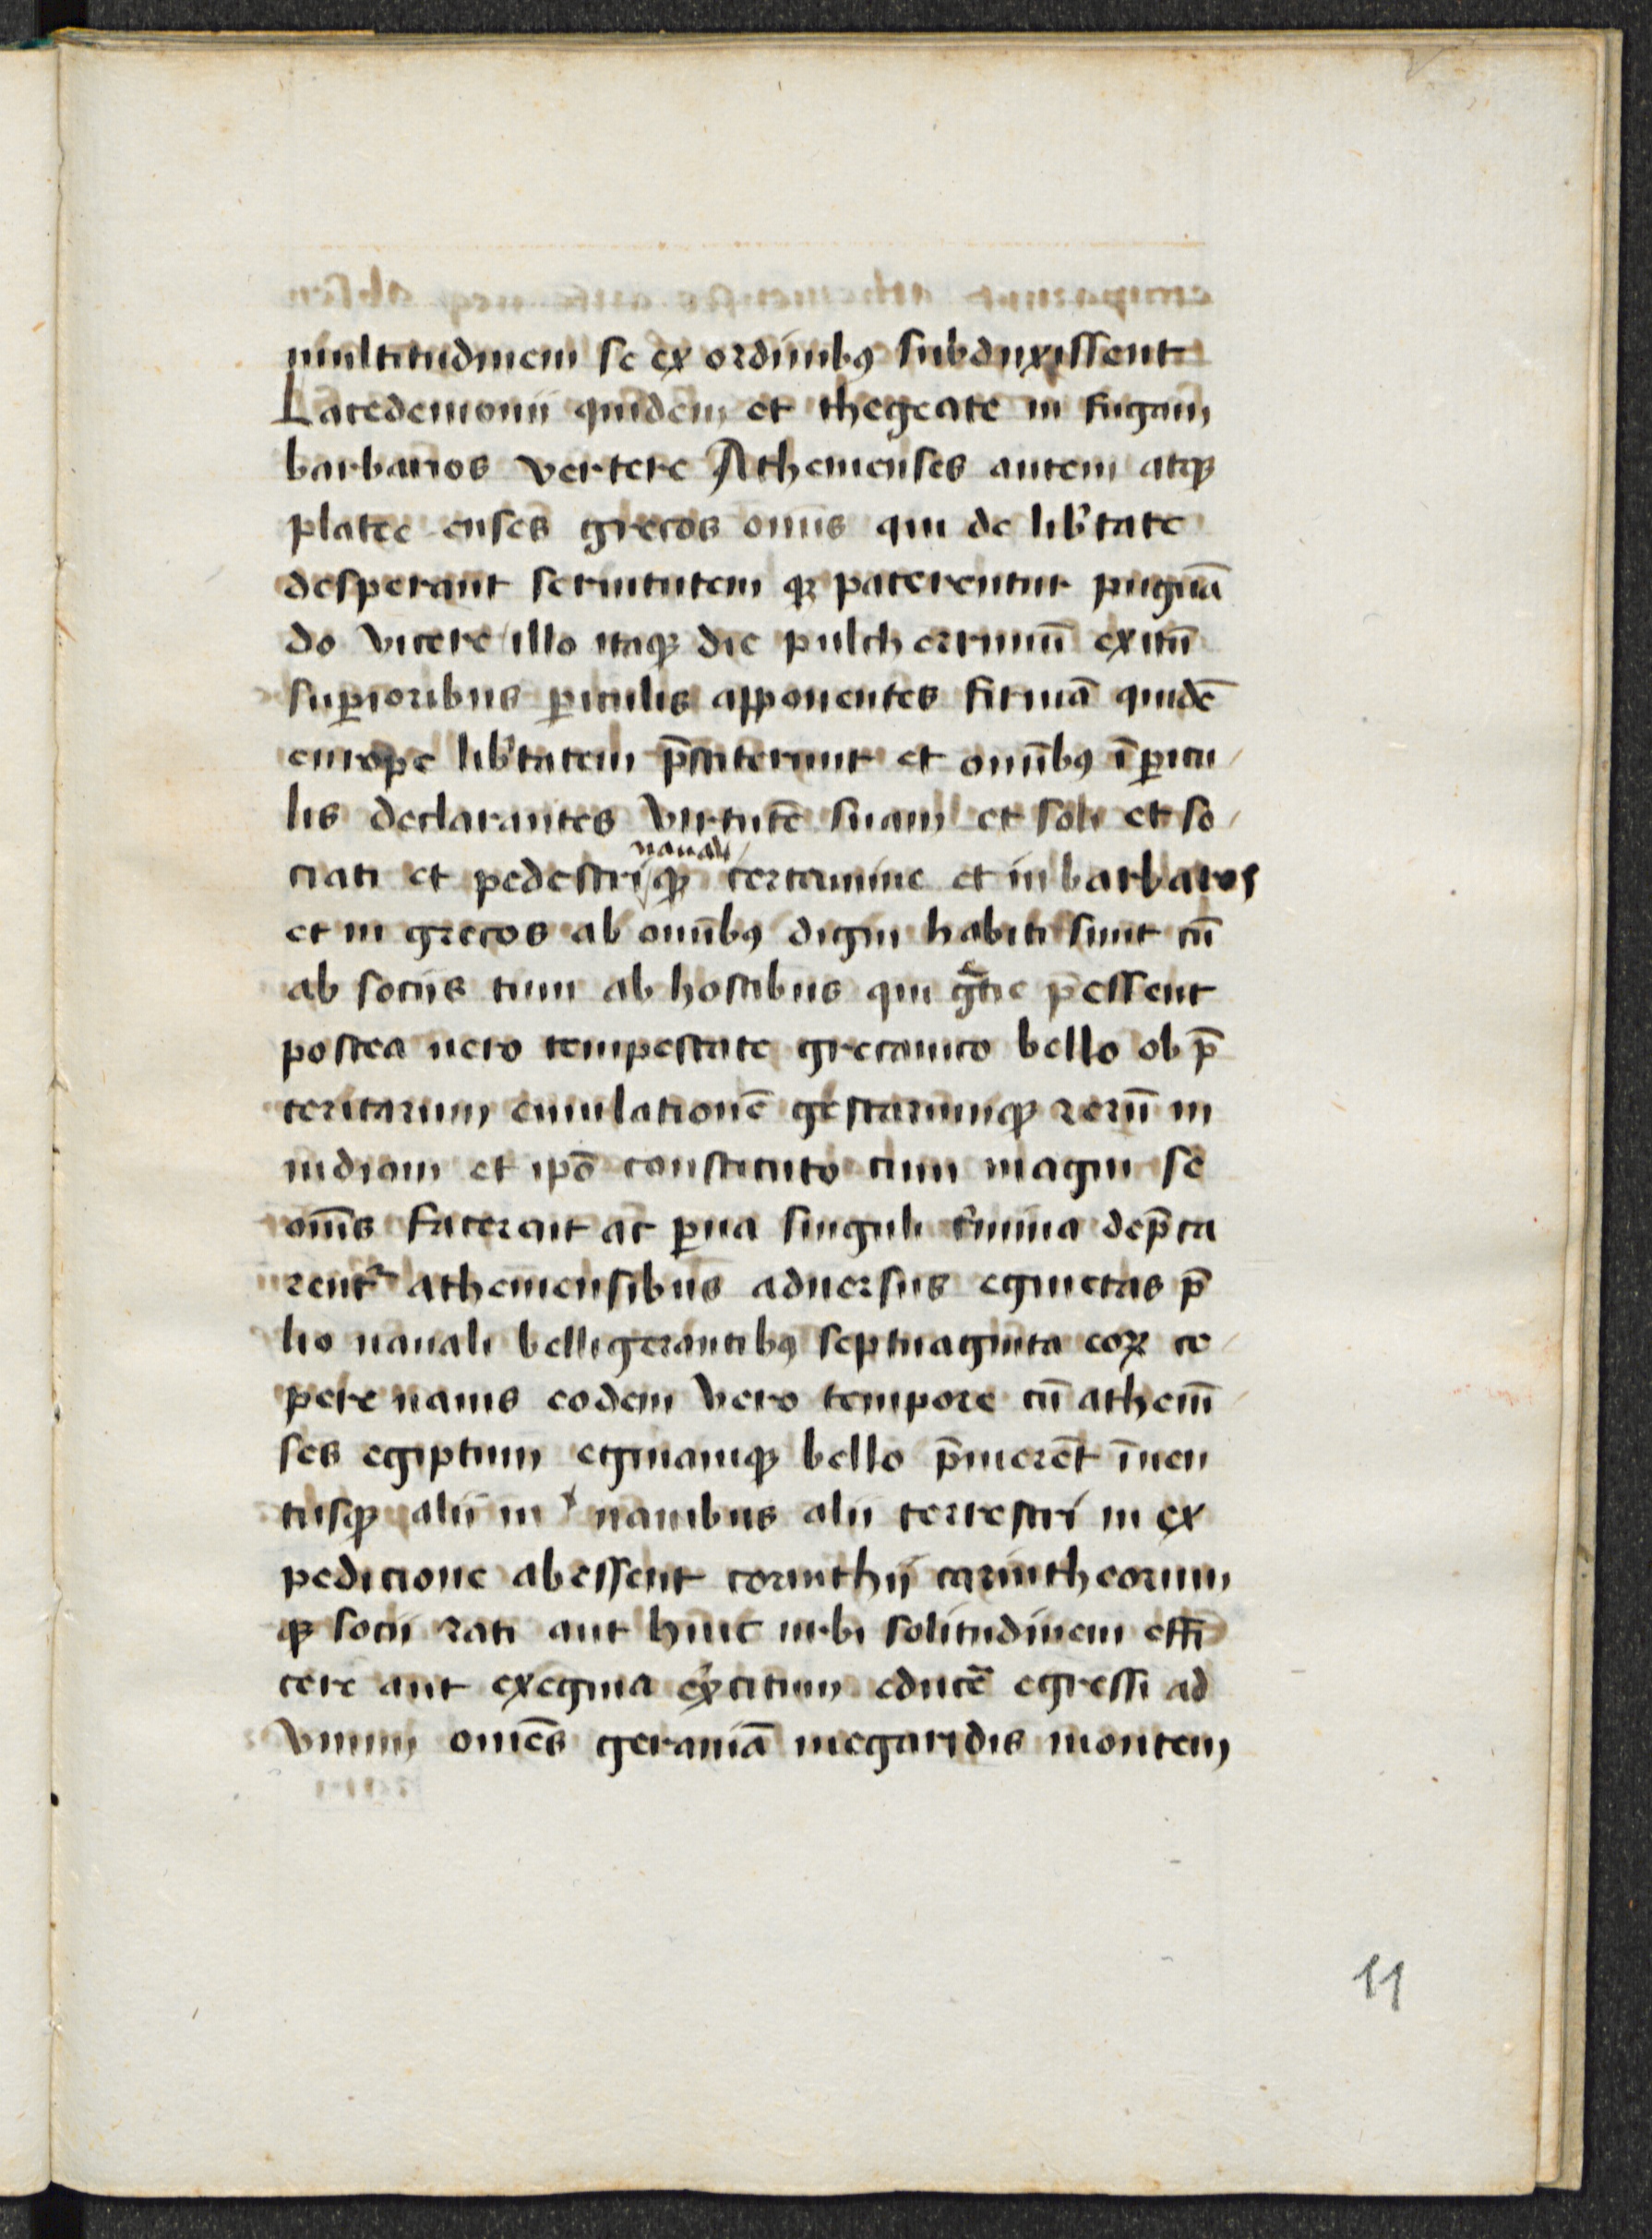 multitudinem se ex ordinibꝯ subduxissent
Lacedemonii quidem et thegeate in fugam
barbaros vertere Athenienses autem atqꝫ
platee enses grecos om̄is qui de lib'tate
desperant seruitutem qꝫ paterentur pugnā
do vicere illo itaqꝫ die pulcherrimū exitū
suꝑioribus ꝑiculis apponentes firmā quidē
europe lib'tatem p̄stiterunt et om̄ibꝯ ī ꝑicu
lis declarantes virtutē suam et soli et so
ciati et pedestri nauali qꝫ certamine et in barbaros
et in grecos ab om̄ibꝯ digni habiti sunt cū
ab sociis tum ab hostibus qui gr̄tie p̄essent
postea uero tempestate grecanico bello ob p̄
teritarum emulationē gestarumqꝫ rerū in
uidiam et ip̄o constituto cum magni se
om̄s facerent ac ꝑua singuli c̄mina dep̄ca
rent᷑ atheniensibus aduersus eginetas p̄
lio nauali belligerantibꝯ septuaginta eoꝝ ce
pere nauis eodem vero tempore cū athenīe
ses egiptum eginamqꝫ bello p̄merēt īuen
tusqꝫ alii in nauibus alii terrestri in ex
pedicione abessent corinthij corintheorum
qꝫ socii rati aut huic urbi solitudinem effi
cere aut ex egina ex̄citum educē egressi ad
vnum omēs geraniā megaridis montem
11